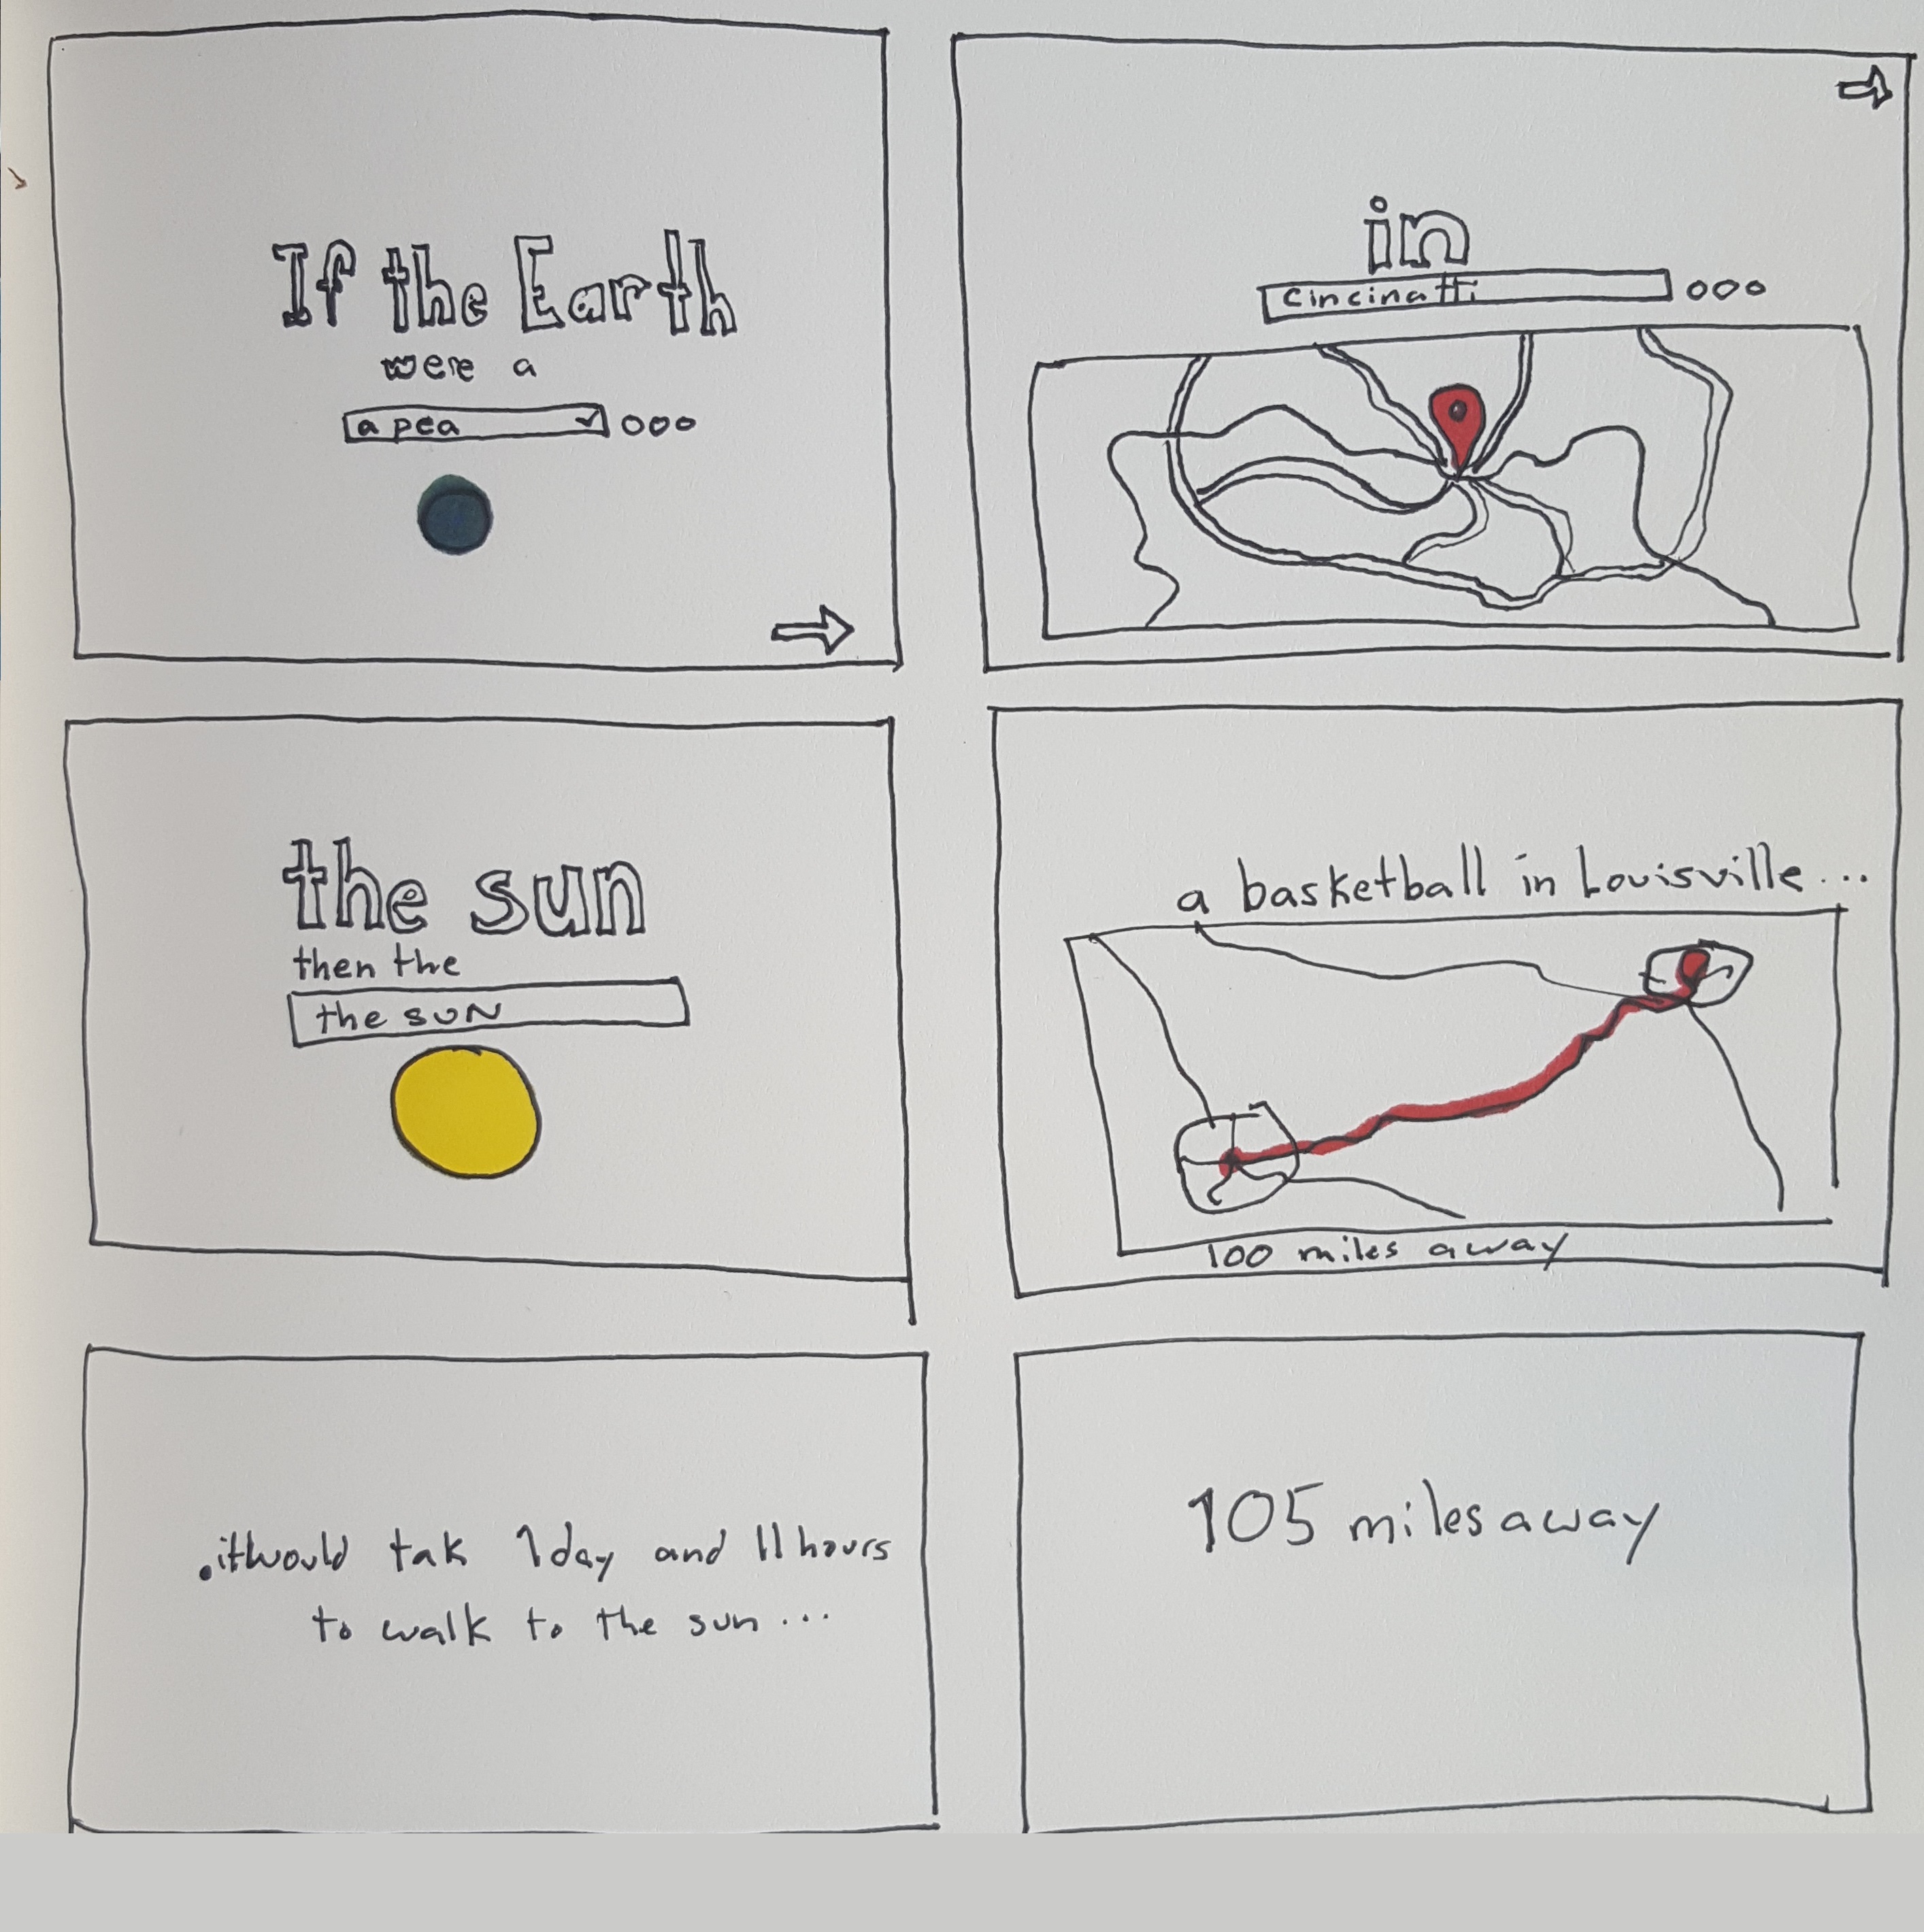 If the Earth
were a
a pea
in
cincinatti
the sun
then the
the SUN
a basketball in Louisville...
100 miles away
.itwould tak 1day and 11hours
to walk to the sun...
105 miles away